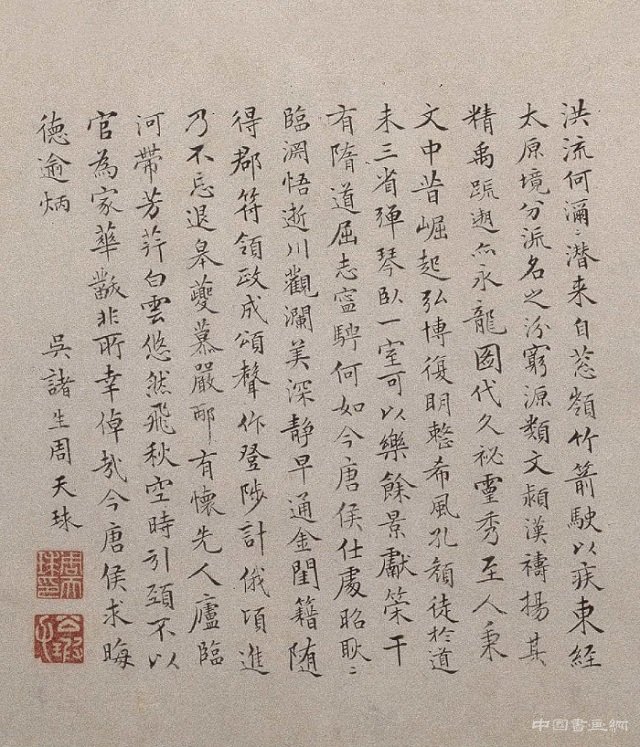 洪流何瀰〻潛来自蔥嶺竹箭駛以疾東經
太原境分流名之汾窮源類文潁漢禱揚其
精禹疏迹亦永龍圖代久祕靈秀至人秉
文中昔崛起弘博復明整希風孔顏徒於道
未三省彈琴臥一室可以樂餘景獻策干
有隋道屈志寍騁何如今唐侯仕處昭耿〻
臨淵悟逝川觀瀾美深靜早通金閨籍随
得郡符領政成頌聲作登陟計俄頃進
乃不忘退皋夔慕嚴邴有懷先人廬臨
河帶芳荓白雲悠然飛秋空時引頸不以
官為家華黻非所幸倬哉今唐侯求晦
德逾炳
吳諸生周天球
周天球印
中国書画網